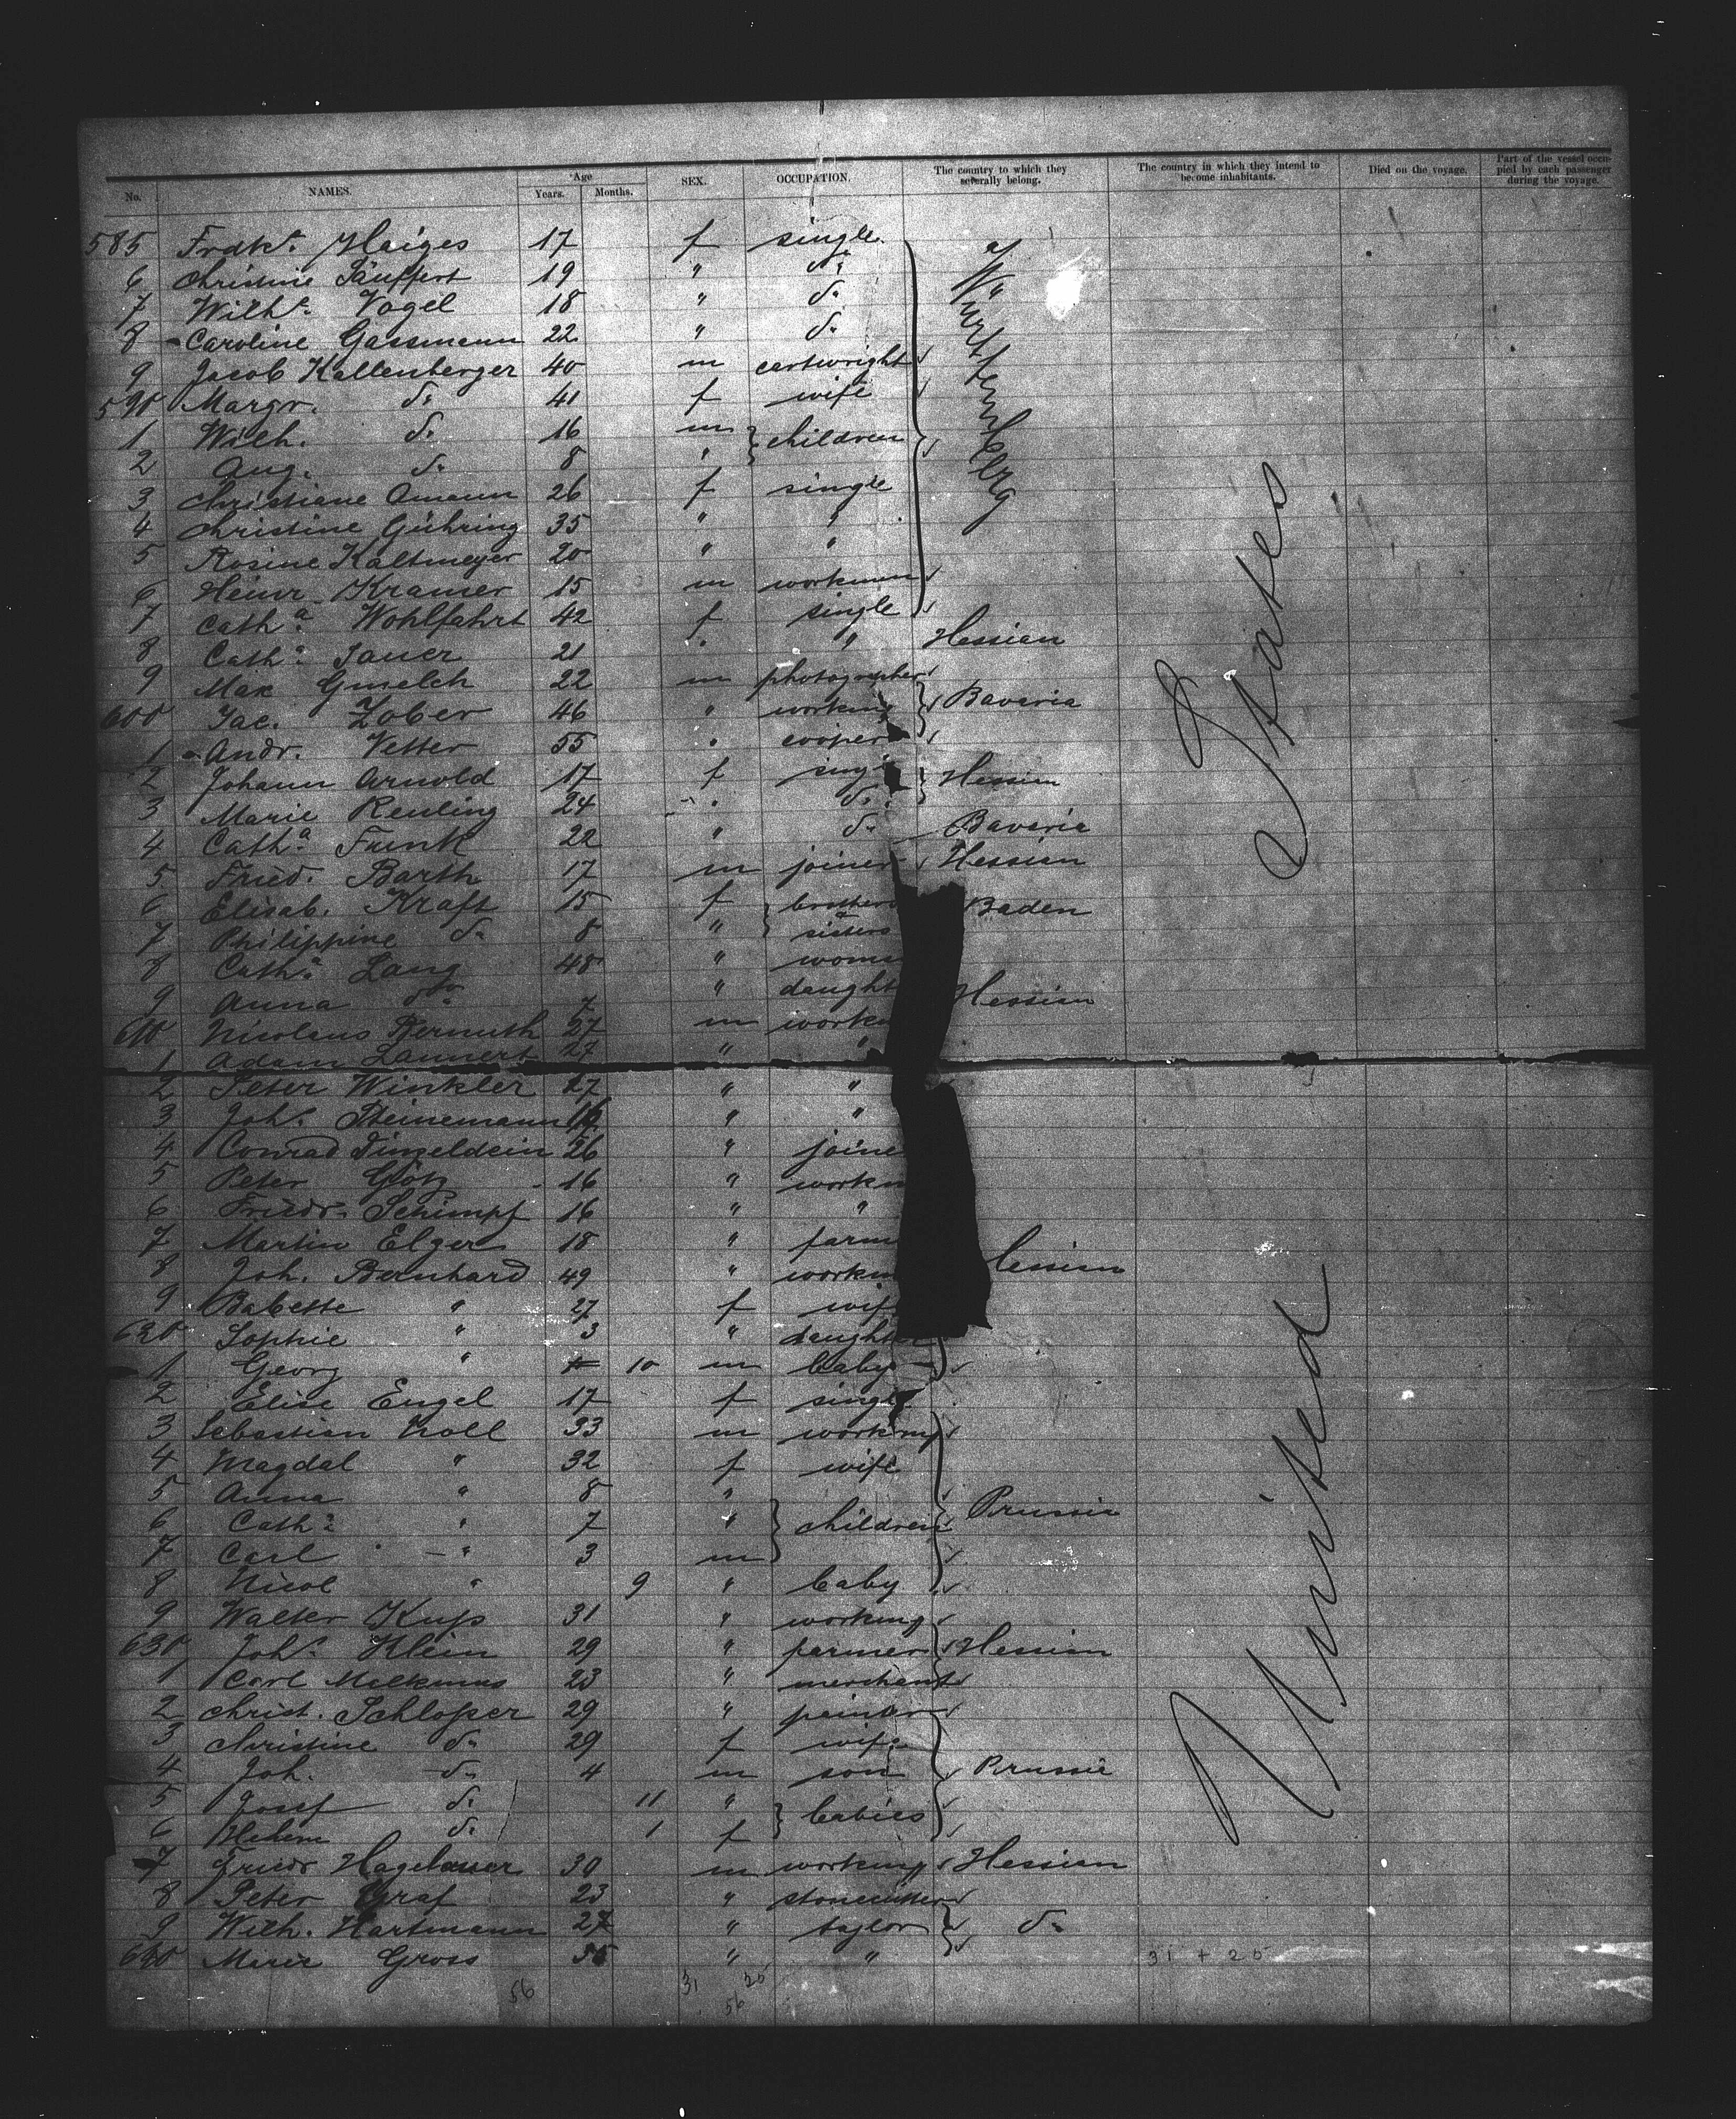 No. NAMES. Age Years. Months. SEX. OCCUPATION. The country to which they severally belong. The country in which they intend to become inhabitants. Died on the voyage. Part of the vessel occupied by each passenger during the voyage.
585 Frdke. Haiges 17 f single
6 Christine Säuffert 19 " do
7 Wilhe. Vogel 18 " do
8 Caroline Gassmann 22 " do
9 Jacob Kallenberger 40 m cartwright
590 Margr. do 41 f wife
1 Wilh. do 16 m children
2 Aug. do 8 "
Württemberg
3 Christiane Amann 26 f single
4 Christine Gühring 35 " "
5 Rosine Kaltmeyer 20 " "
6 Heinr. Kramer 15 m workman
7 Catha. Wohlfahrt 42 f single
8 Catha. Sauer 21 " " Hessian
9 Max Gmelch 22 m photographer
600 Jac. Zober 46 " workmg Bavaria
1 Andr. Vetter 55 " cooper
2 Johann Arnold 17 f sing Hessian
3 Marie Reuling 24 " do
4 Catha. Funk 22 " do Bavaria
5 Fried. Barth 17 m joiner Hessian
6 Elisab. Kraft 15 f brothers Baden
7 Philippine do 8 " sisters
8 Catha. Lang 48 " woma
9 Anna do 7 " daught Hessian
610 Nicolaus Bermuth 37 m workm
1 Adam Launert 27 " "
2 Peter Winkler 27 " "
3 Johs. Steinemann 16 " "
4 Conrad Dingeldein 26 " joine
5 Peter Götz 16 " workm
6 Friedr. Schimpf 16 " "
7 Martin Elzer 18 " farm
8 Joh. Bernhard 49 " workm essian
9 Babette " 27 f wif
620 Sophie " 3 " daughter
1 Georg " 10 m baby
2 Elise Engel 17 f single
3 Sebastian Kroll 33 m workmg
4 Magdal " 32 f wife
5 Anna " 8 "
6 Catha " 7 " children Prussia
7 Carl " 3 m
8 Nicol " 9 " baby
9 Walter Kups 31 " workmg
630 Johs. Klein 29 " farmer Hessian
1 Carl Melkmus 23 " merchant
2 Christ. Schlosser 29 " painter
3 Christine do 29 f wife
4 Joh. do 4 m son Prussia
5 Josef do 11 " babies
6 do 1 f
7 Friedr Hagelauer 30 m workmg Hessian
8 Peter Graf 23 " stonecutter
9 Wilh. Hartmann 27 " taylor do
640 Gross " "
United States
31 + 25
56 31 25
56